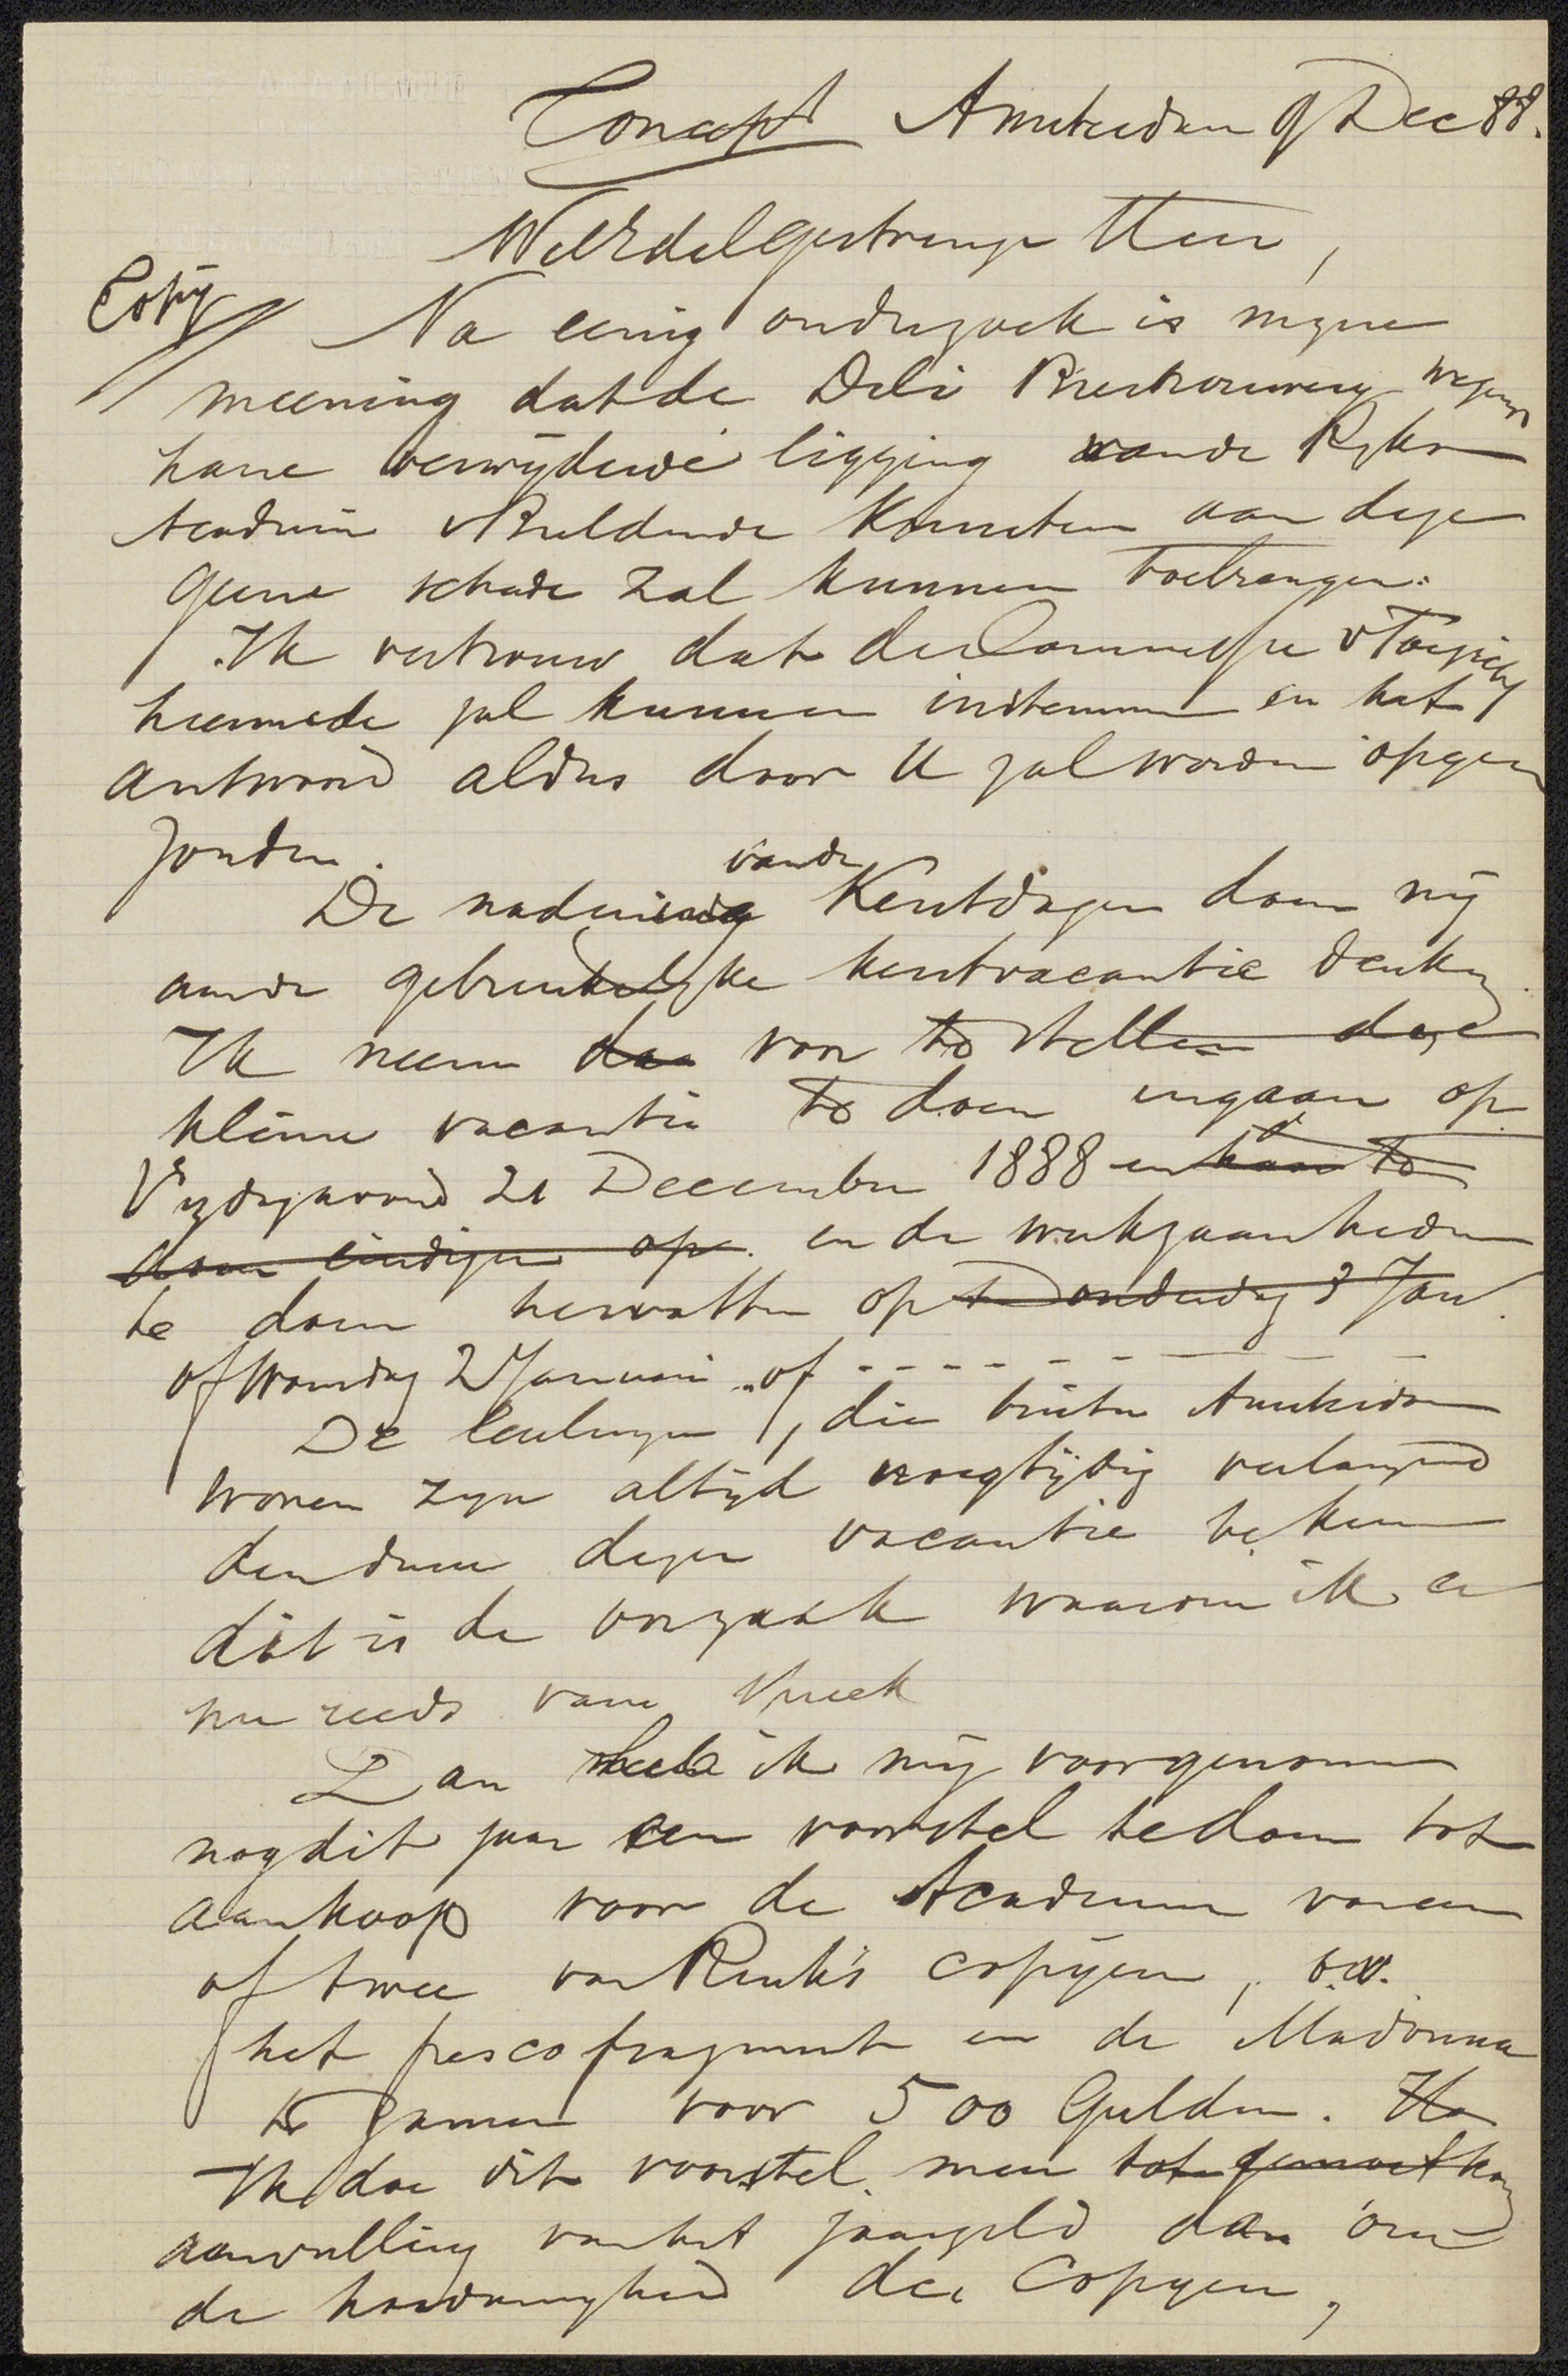 Concept Amsterdam 9 Dec 88.
WelEdelGestrenge Heer,
Copy
Na eenig onderzoek is mijne
meening dat de Deli Bierbrouwerij wegens
hare verwijderde ligging van de Rijks
Academie v Beeldende Kunsten aan deze
geene schade zal kunnen toebrengen.
Ik vertrouw dat de Commissie v Toezicht
hiermede zal kunnen instemmen en het
antwoord aldus door U zal worden opge
zonden.
vande
De nadering Kerstdagen doen mij
aan de gebruikelijke kerstvacantie denken.
Ik neem voor te stellen deze
kleine vacantie te doen ingaan op
Vrijdagavond 21 December 1888 en haar te
doen eindigen op en de werkzaamheden
te doen hervatten op Donderdag 3 Jan.
of Woensdag 2 Januari of - - - - - - - - -
De leerlingen, die buiten Amsterdam
wonen zijn altijd vroegtijdig verlangend
den duur dezer vacantie te kennen
dit is de oorzaak waarom ik er
nu reeds van spreek
Dan heb ik mij voorgenomen
nog dit jaar een voorstel te doen tot
aankoop voor de Academie van een
of twee van Rink's copijen, b.v.
het frescofragment en de Madonna
te zamen voor 500 Gulden.
Ik doe dit voorstel meer tot
aanvulling van het jaargeld dan om
de hoedanigheid der Copijen,